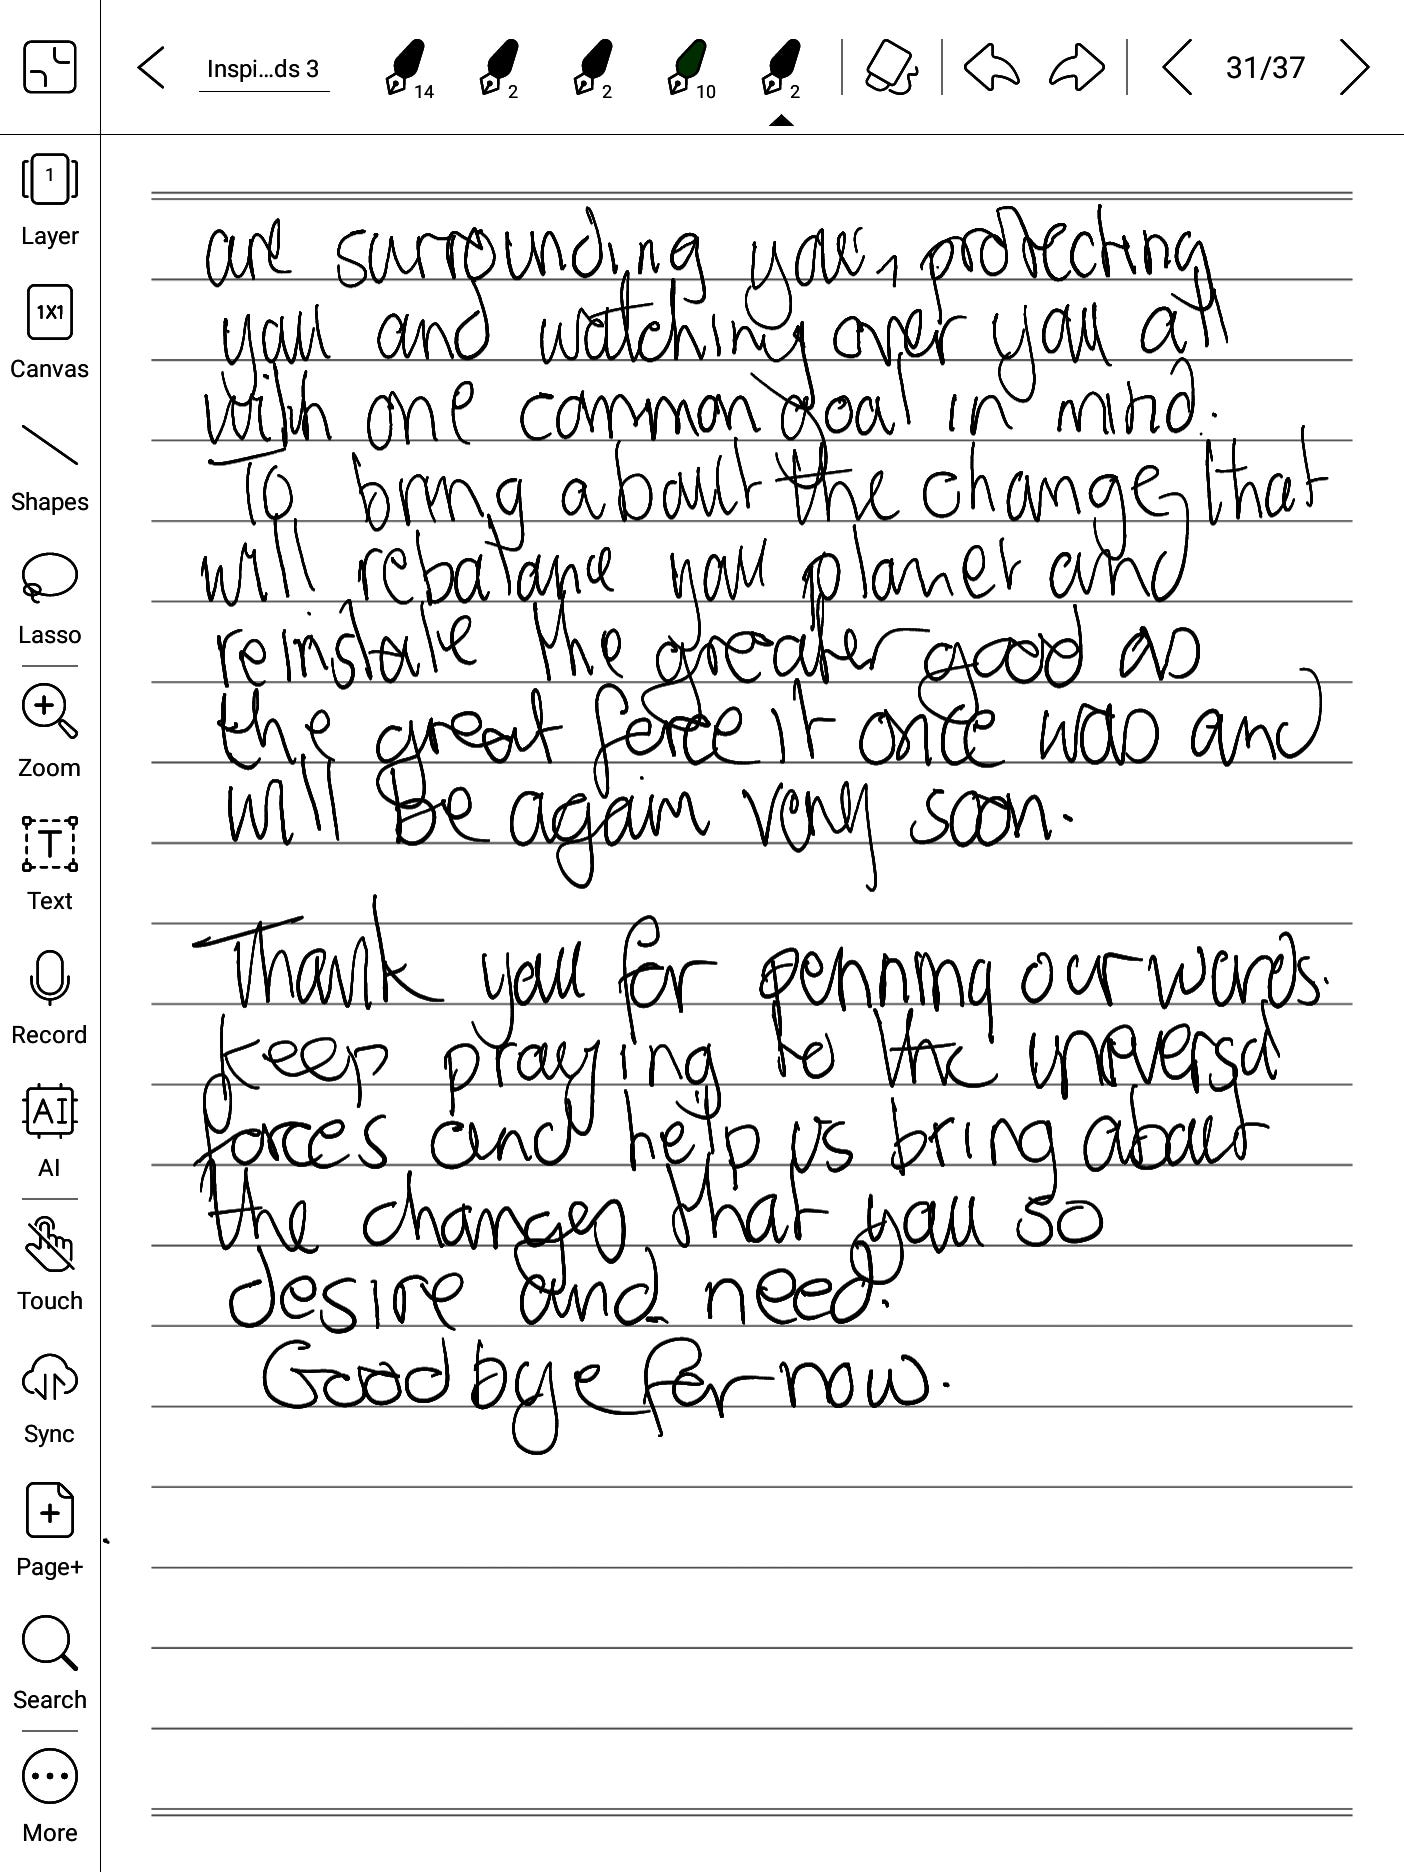 Inspi...ds 3
14
2
2
10
2
31/37
1
Layer
1X1
Canvas
Shapes
Lasso
Zoom
T
Text
Record
AI
AI
Touch
Sync
Page+
Search
More
are surrounding you, protecting
you and watching over you all
with one common goal in mind.
To bring about the change, that
will rebalance you planet and
reinstate the greater good as
the great force it once was and
will be again very soon.
Thank you for penning our words.
keep praying to the universal
forces and help us bring about
the changes that you so
desire and need.
Goodbye for now.